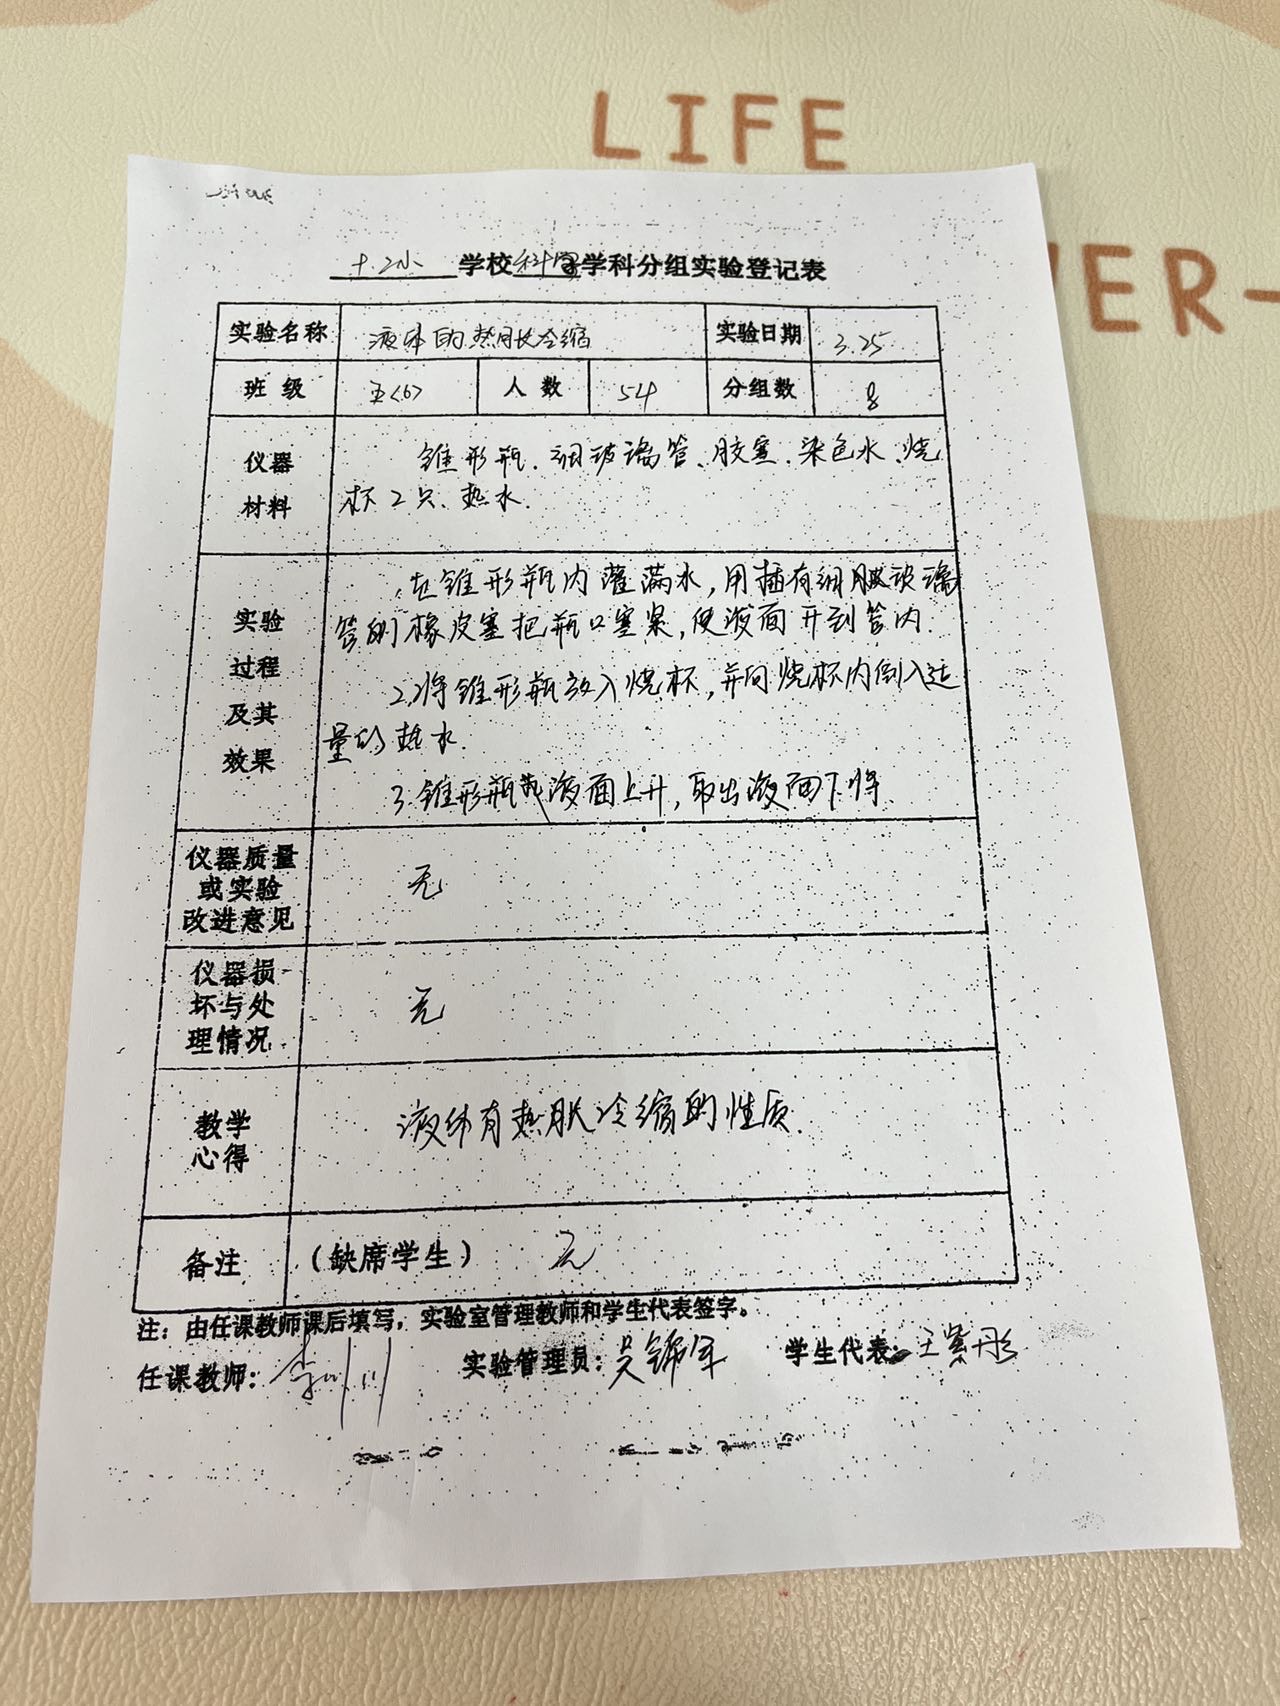 LIFE
VER-
十.2小 学校科学学科分组实验登记表
实验名称 液体的热胀冷缩 实验日期 3.25
班级 五<6> 人数 54 分组数 8
仪器
材料
锥形瓶、细玻璃管、胶塞、染色水、烧
杯2只、热水.
实验
过程
及其
效果
1.在锥形瓶内灌满水,用插有细玻璃
管的橡皮塞把瓶口塞紧,使液面升到管内.
2.将锥形瓶放入烧杯,并向烧杯内倒入适
量的热水.
3.锥形瓶 液面上升,取出液面下降
仪器质量
或实验
改进意见
无
仪器损
坏与处
理情况
无
教学
心得
液体有热胀冷缩的性质.
备注 (缺席学生) 无
注:由任课教师课后填写,实验室管理教师和学生代表签字。
任课教师: 实验管理员:吴锦军 学生代表:王紫彤